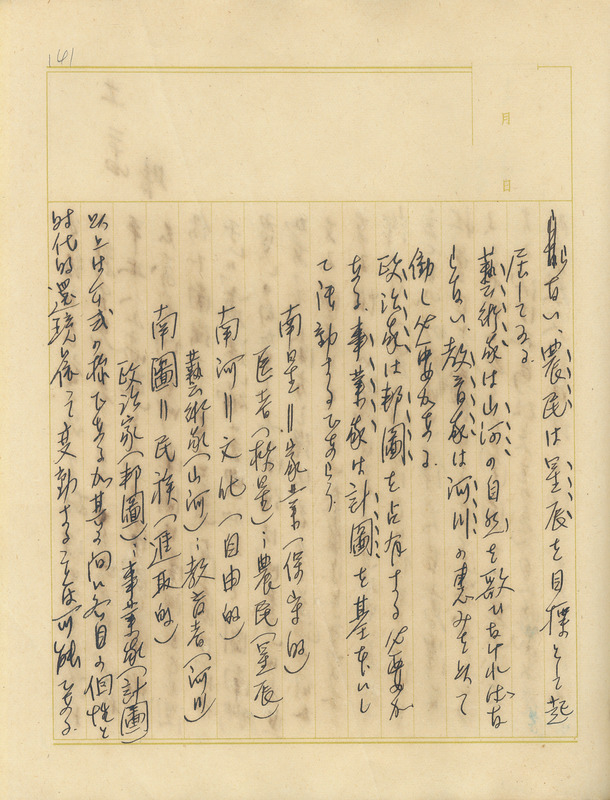 141
月 日
ない、農民は星辰を目標として起
居してゐる
藝術家は山河の自然を歌ひなければな
らない、教育家は河川の恵みを以て
働く必要がある
政治家は邦圖を占有する必要が
ある、事業家は計圖を基本にし
て活動するであらう
南星＝家業（保守的）
医者（救星）：農民（星辰）
南河＝文化（自由的）
藝術家（山河）：教育者（河川）
南圖＝民族（進取的）
政治家（邦圖）：事業家（計圖）
以上は公式の様であるが其の間に各自の個性と
時代的還境に依って変動することは可能である